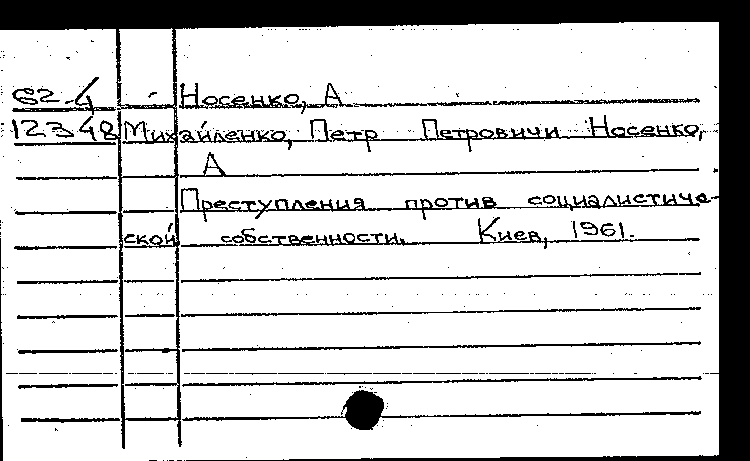 62-4 Носенко, А
12348 Михайленко, Петр Петровичи Носенко,
А
Преступления против социалистиче-
ской собственности. Киев, 1961.